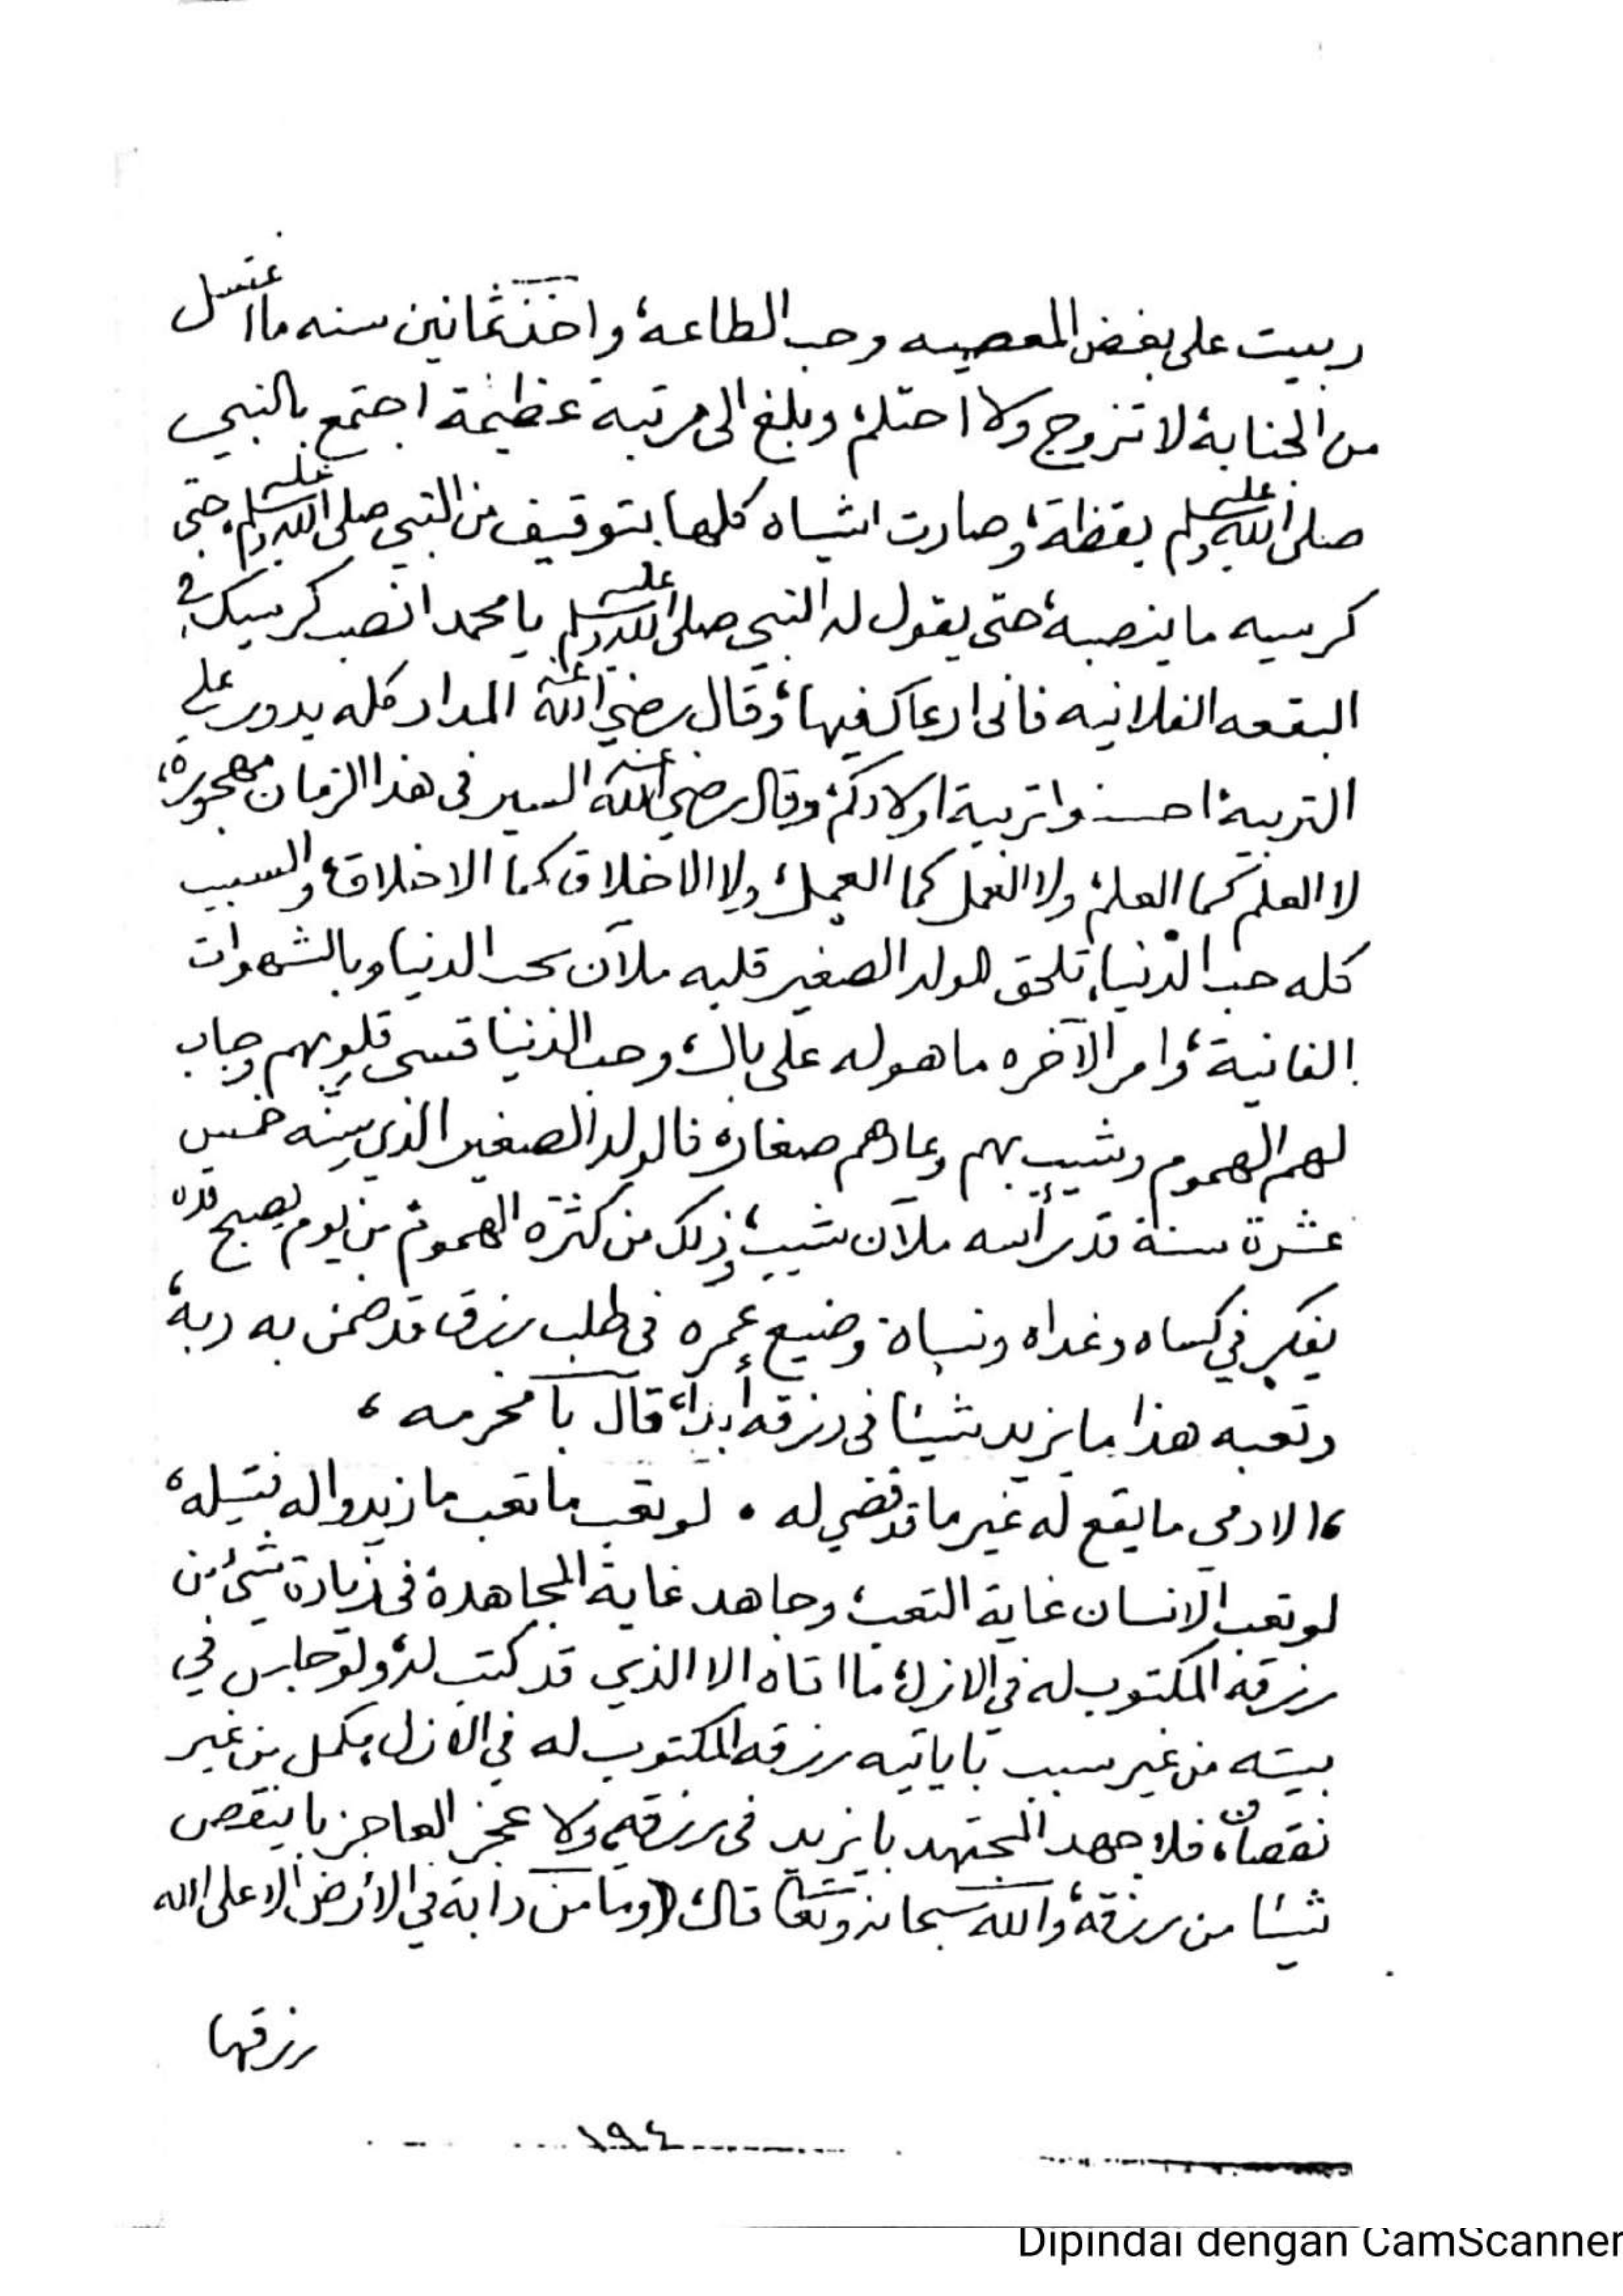 ربيت على بغض المعصيه وحب الطاعة، واخذ ثمانين سنه ما اغتسل
من الجنابة لا تزوج ولا احتلم، وبلغ الى مرتبة عظيمة اجتمع بالنبي
صلى الله عليه وسلم يقظة، وصارت اشياه كلها بتوقيف من النبي صلى الله عليه وسلم، حتى
كرسيه ما ينصبه، حتى يقول له النبي صلى الله عليه وسلم يا محمد انصب كرسيك في
البقعه الفلانيه فانى ارعاك فيها، وقال رضي الله عنه المدار كله يدور على
التربية، احسنوا تربية اولادكم، وقال رضي الله عنه السير فى هذا الزمان مهجورة،
لا العلم كما العلم، ولا العمل كما العمل، ولا الاخلاق كما الاخلاق، والسبب
كله حب الدنيا، تلحق الولد الصغير قلبه ملآن بحب الدنيا وبالشهوات
الفانية، وامر الآخره ما هو له على بال، وحب الدنيا قسى قلوبهم وجاب
لهم الهموم وشيب بهم وعادهم صغار، فالولد الصغير الذي سنه خمس
عشرة سنة قد رأسه ملآن شيب، وذلك من كثرة الهموم، من يوم يصبح قده
يفكر في كساه وغداه ونساه، وضيع عمره فى طلب رزق قد ضمن به ربه،
وتعبه هذا ما يزيد شيئا فى رزقه أبدا، قال با مخرمه،
، الادمي ما يقع له غير ما قد قضي له • لو تعب ما تعب ما زيدوا له فتيله،
لو تعب الانسان غاية التعب، وجاهد غاية المجاهدة فى زيادة شيء من
رزقه المكتوب له فى الازل، ما اتاه الا الذي قد كتب له، ولو جلس في
بيته من غير سبب با ياتيه رزقه المكتوب له في الازل، مكمل من غير
نقصان، فلا جهد المجتهد با يزيد فى رزقه، ولا عجز العاجز با ينقص
شيئا من رزقه، والله سبحانه وتعالى قال، (وما من دابة في الأرض الا على الله
رزقها
١٩٤
Dipindai dengan CamScanner